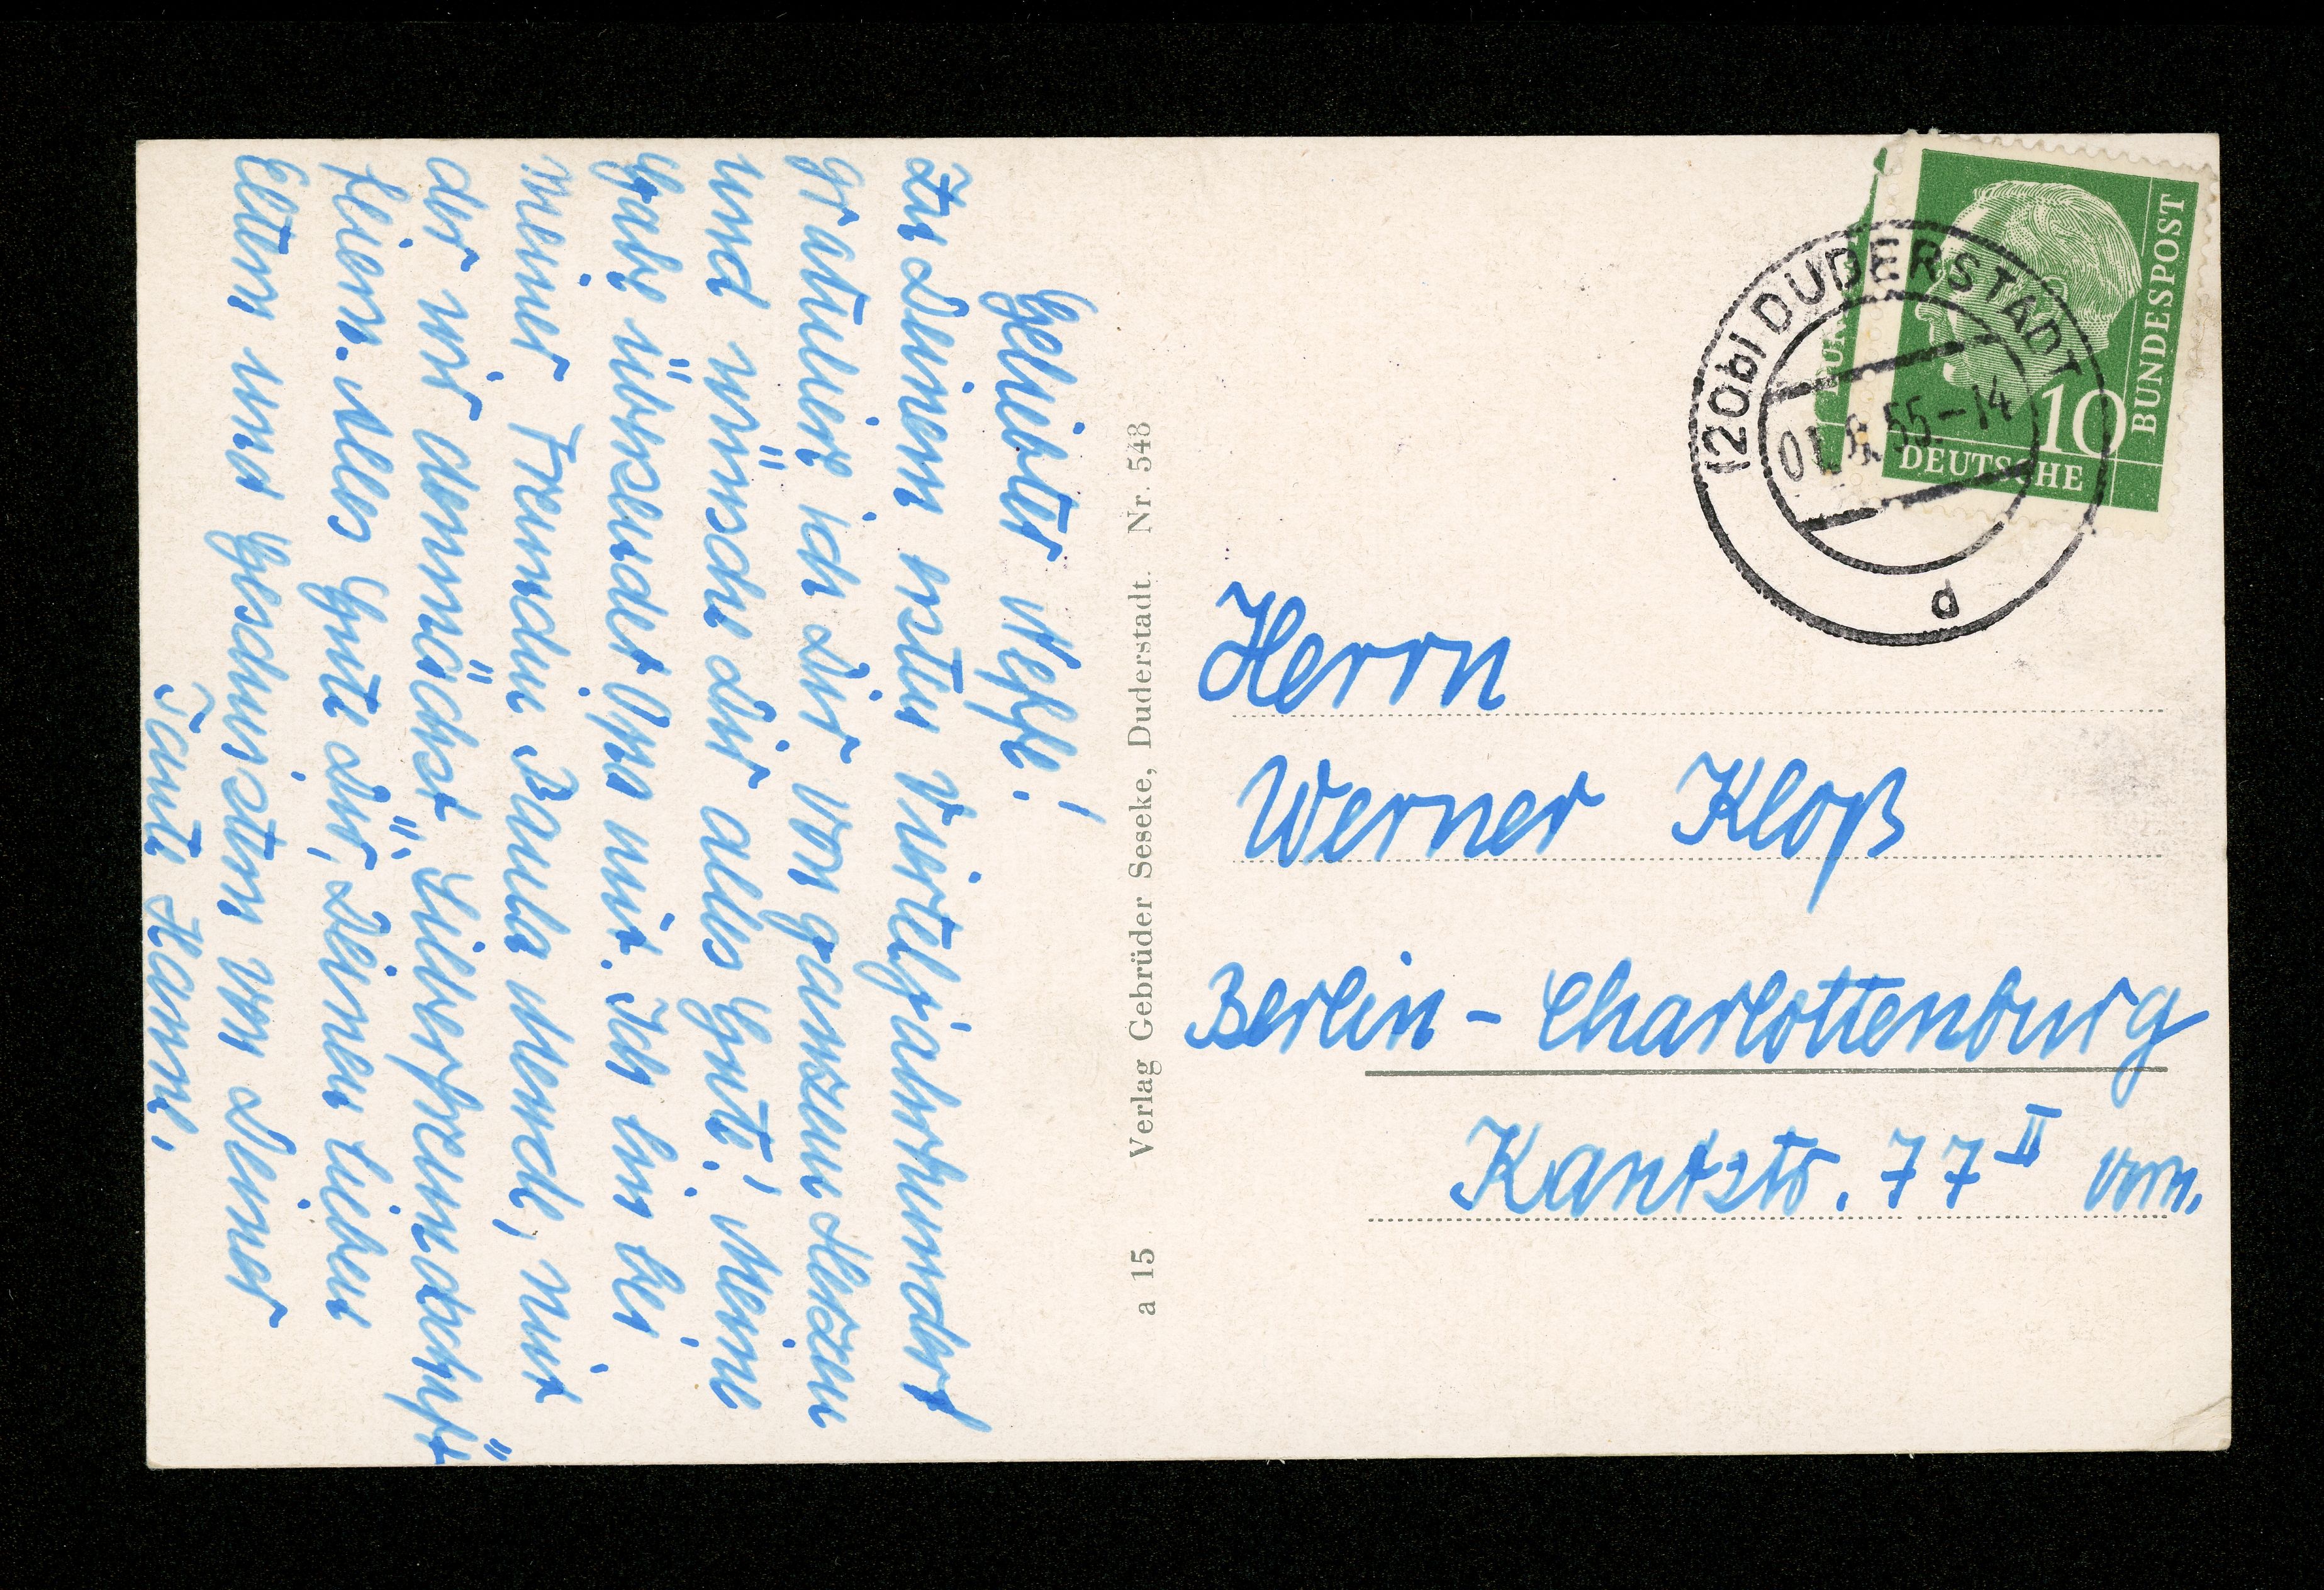 Geliebter Neffe!
Zu Deinem ersten Vierteljahrhundert
gratuliere ich Dir von ganzem Herzen
und wünsche Dir alles Gute! Meine
Gabe übersendet Opa mit. Ich bin bei
meiner Freundin Paula Mende, mit
der wir demnächst „Silberfreundschaft"
feiern. Alles Gute Dir, Deinen lieben
Eltern und Geschwistern von Deiner
Tante Hanne.
a 15 Verlag Gebrüder Seseke, Duderstadt. Nr. 548
DEUTSCHE
BUNDESPOST
10
(20b) DUDERSTADT
01.6.55.-14
d
Herrn
Werner Kloß
Berlin-Charlottenburg
Kantstr. 77 II vorn.